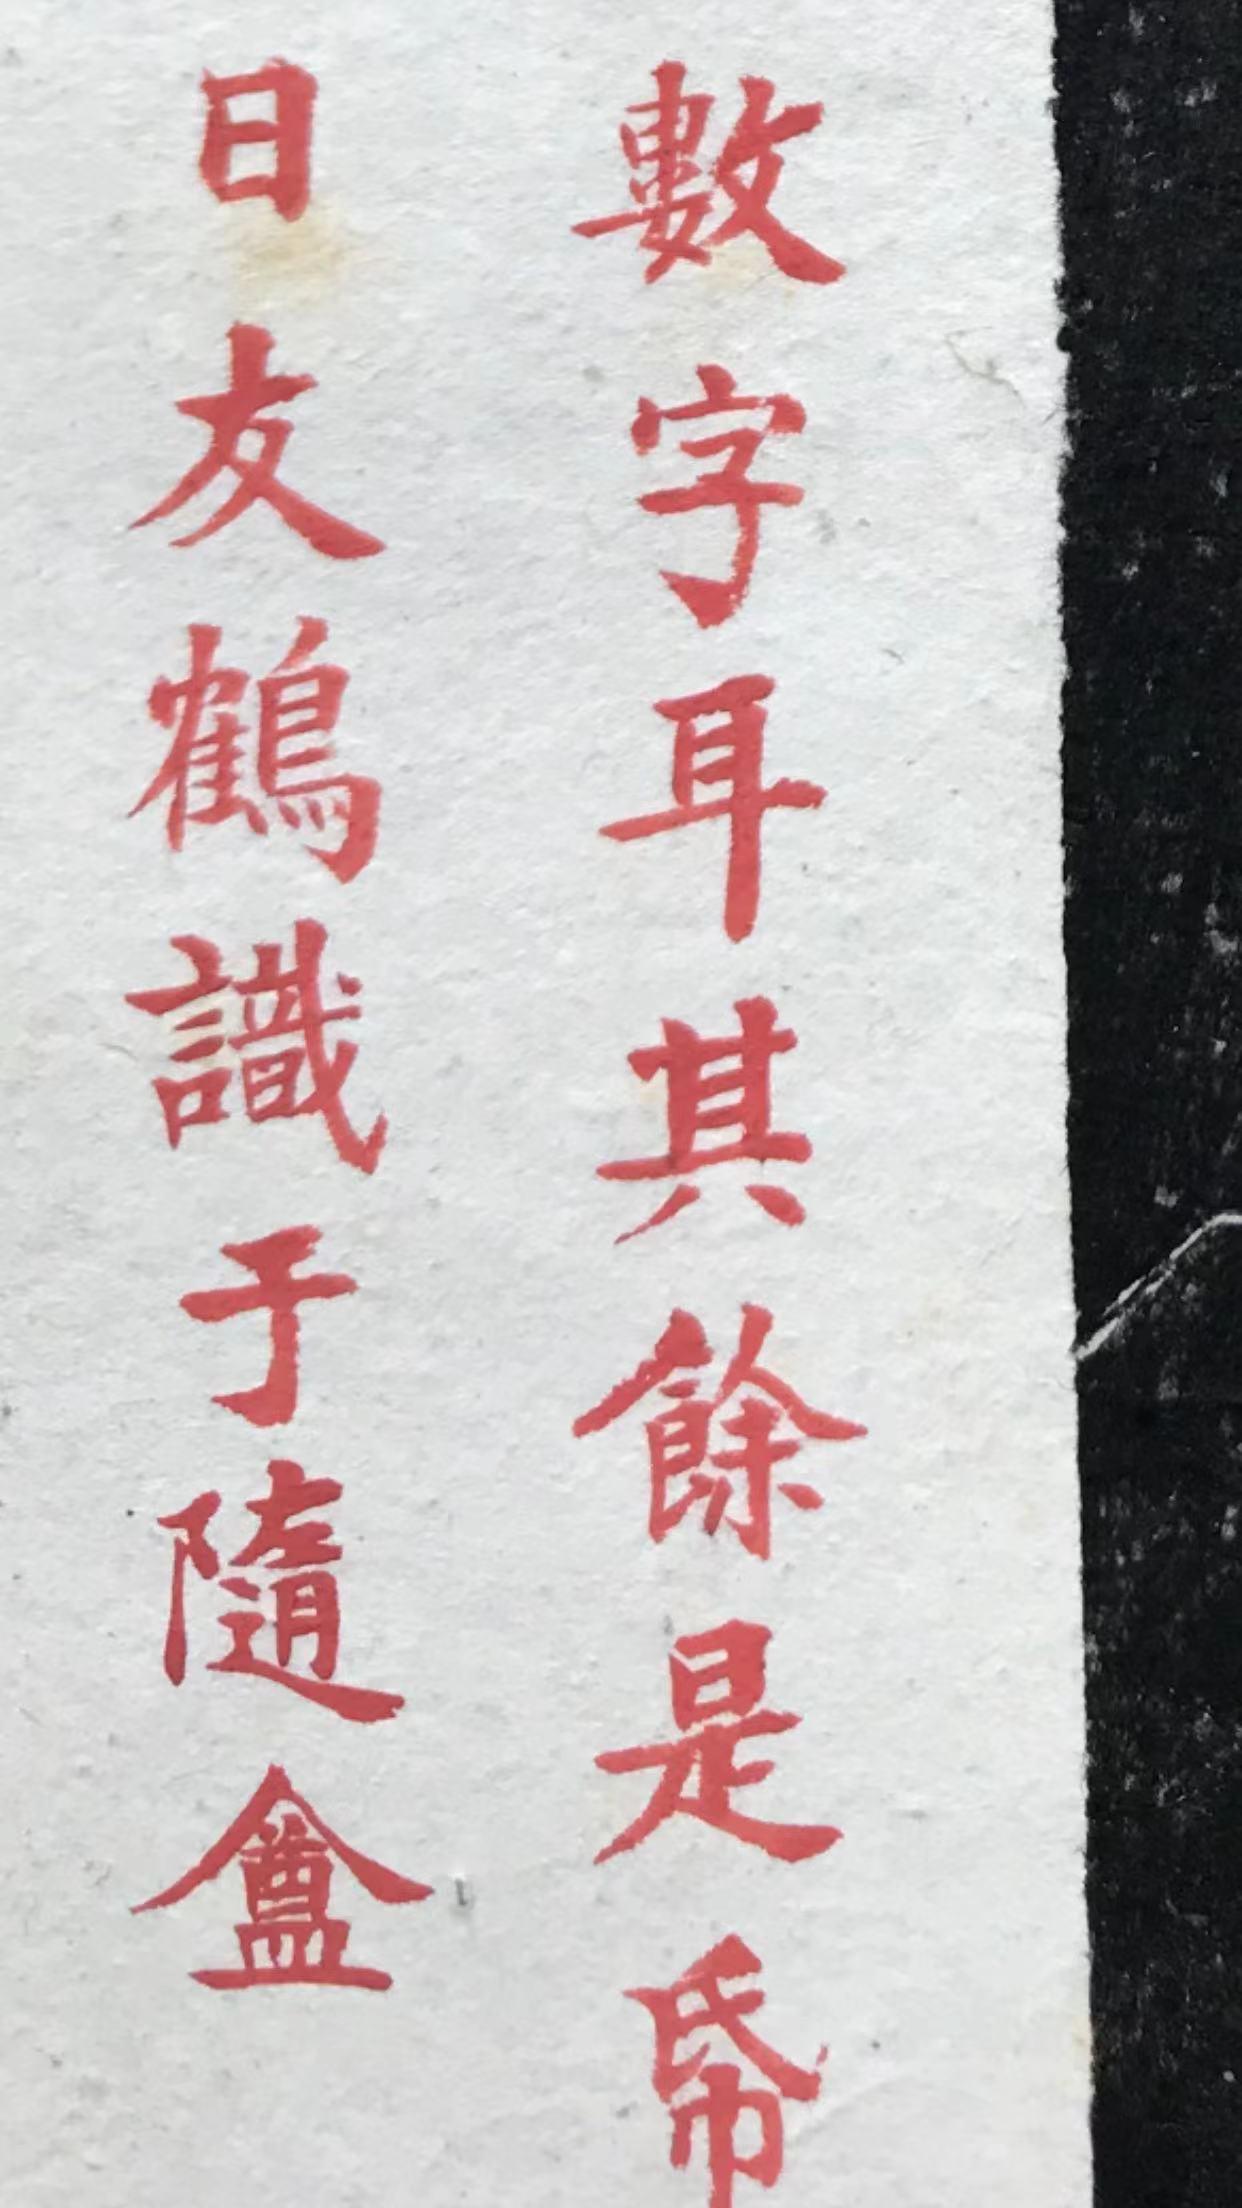 數字耳其餘是帋
日友鶴識于隨盦